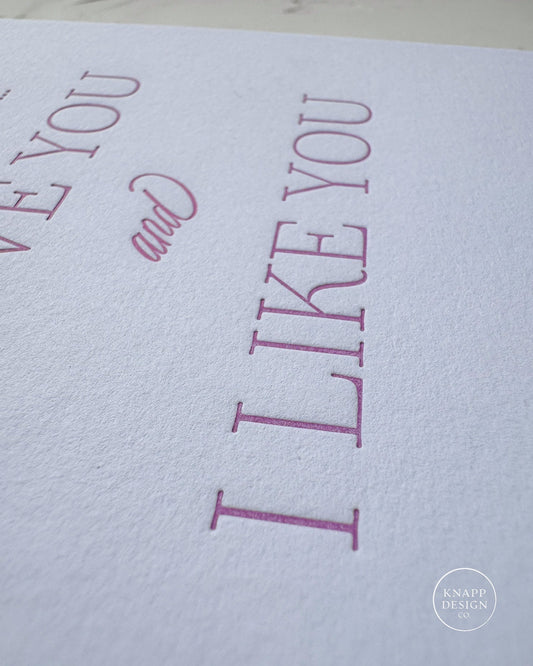 ...
VE YOU
and
I LIKE YOU
KNAPP
DESIGN
CO.